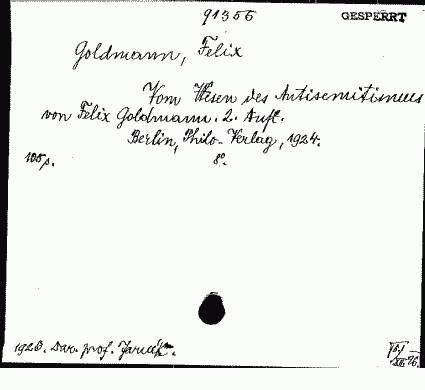 91356 GESPERRT
Goldmann, Felix
Vom Wesen des Antisemitismus
von Felix Goldmann. 2. Aufl.
Berlin, Philo-Verlag, 1924.
108p. 8°.
1926. Dar. prof.